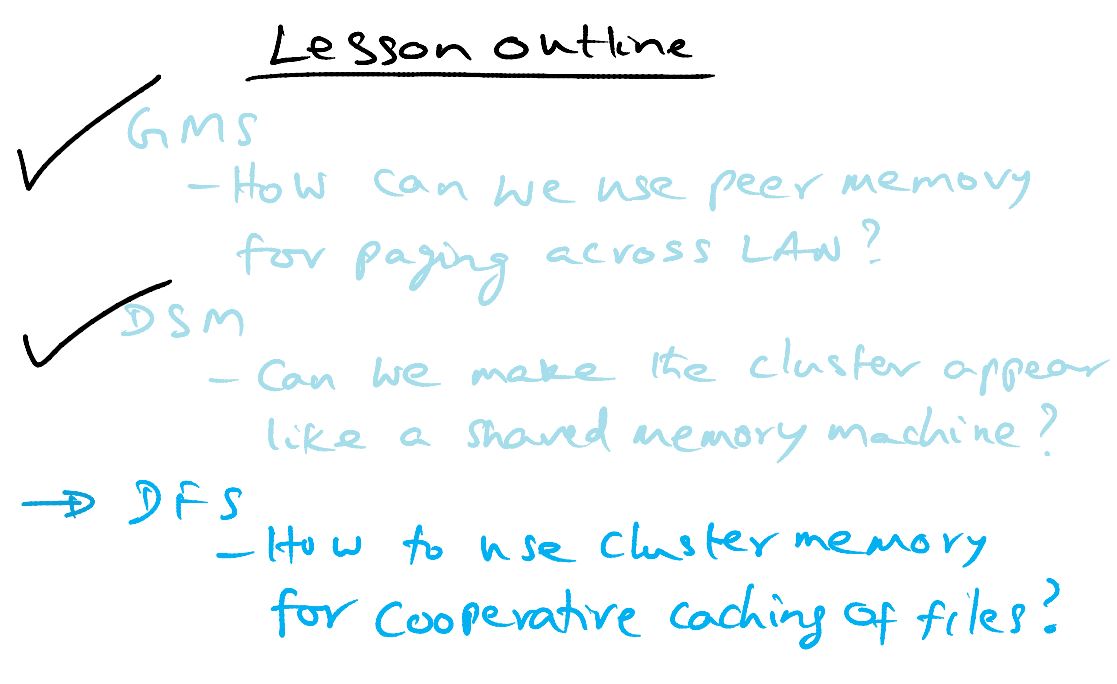 Lesson outline
GMS
- How can we use peer memory
for paging across LAN?
DSM
- Can we make the cluster appear
like a shared memory machine?
→ DFS
- How to use cluster memory
for cooperative caching of files?